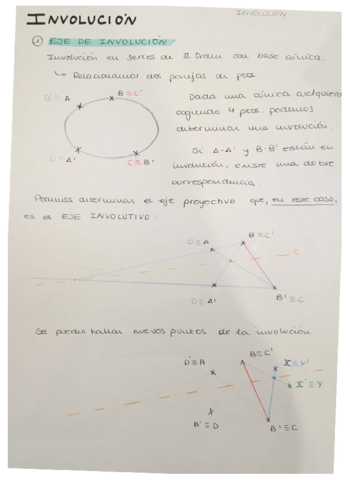 INVOLUCIÓN
INVOLUCIÓN
1 EJE DE INVOLUCIÓN
Involución en series de II Orden con base cónica.
↳ Relacionamos dos parejas de ptos.
D'≡A
B≡C'
D≡A'
C≡B'
Dada una cónica cualquiera
cogiendo 4 ptos. podemos
determinar una involución.
Si A-A' y B-B' están en
involución, existe una doble
correspondencia.
Podemos determinar el eje proyectivo que, en este caso,
es el EJE INVOLUTIVO:
B≡C'
D≡A
e
D≡A'
B'≡C
Se pueden hallar nuevos puntos de la involución.
B≡C'
D'≡A
X≡Y'
X'≡Y
A'≡D
B'≡C